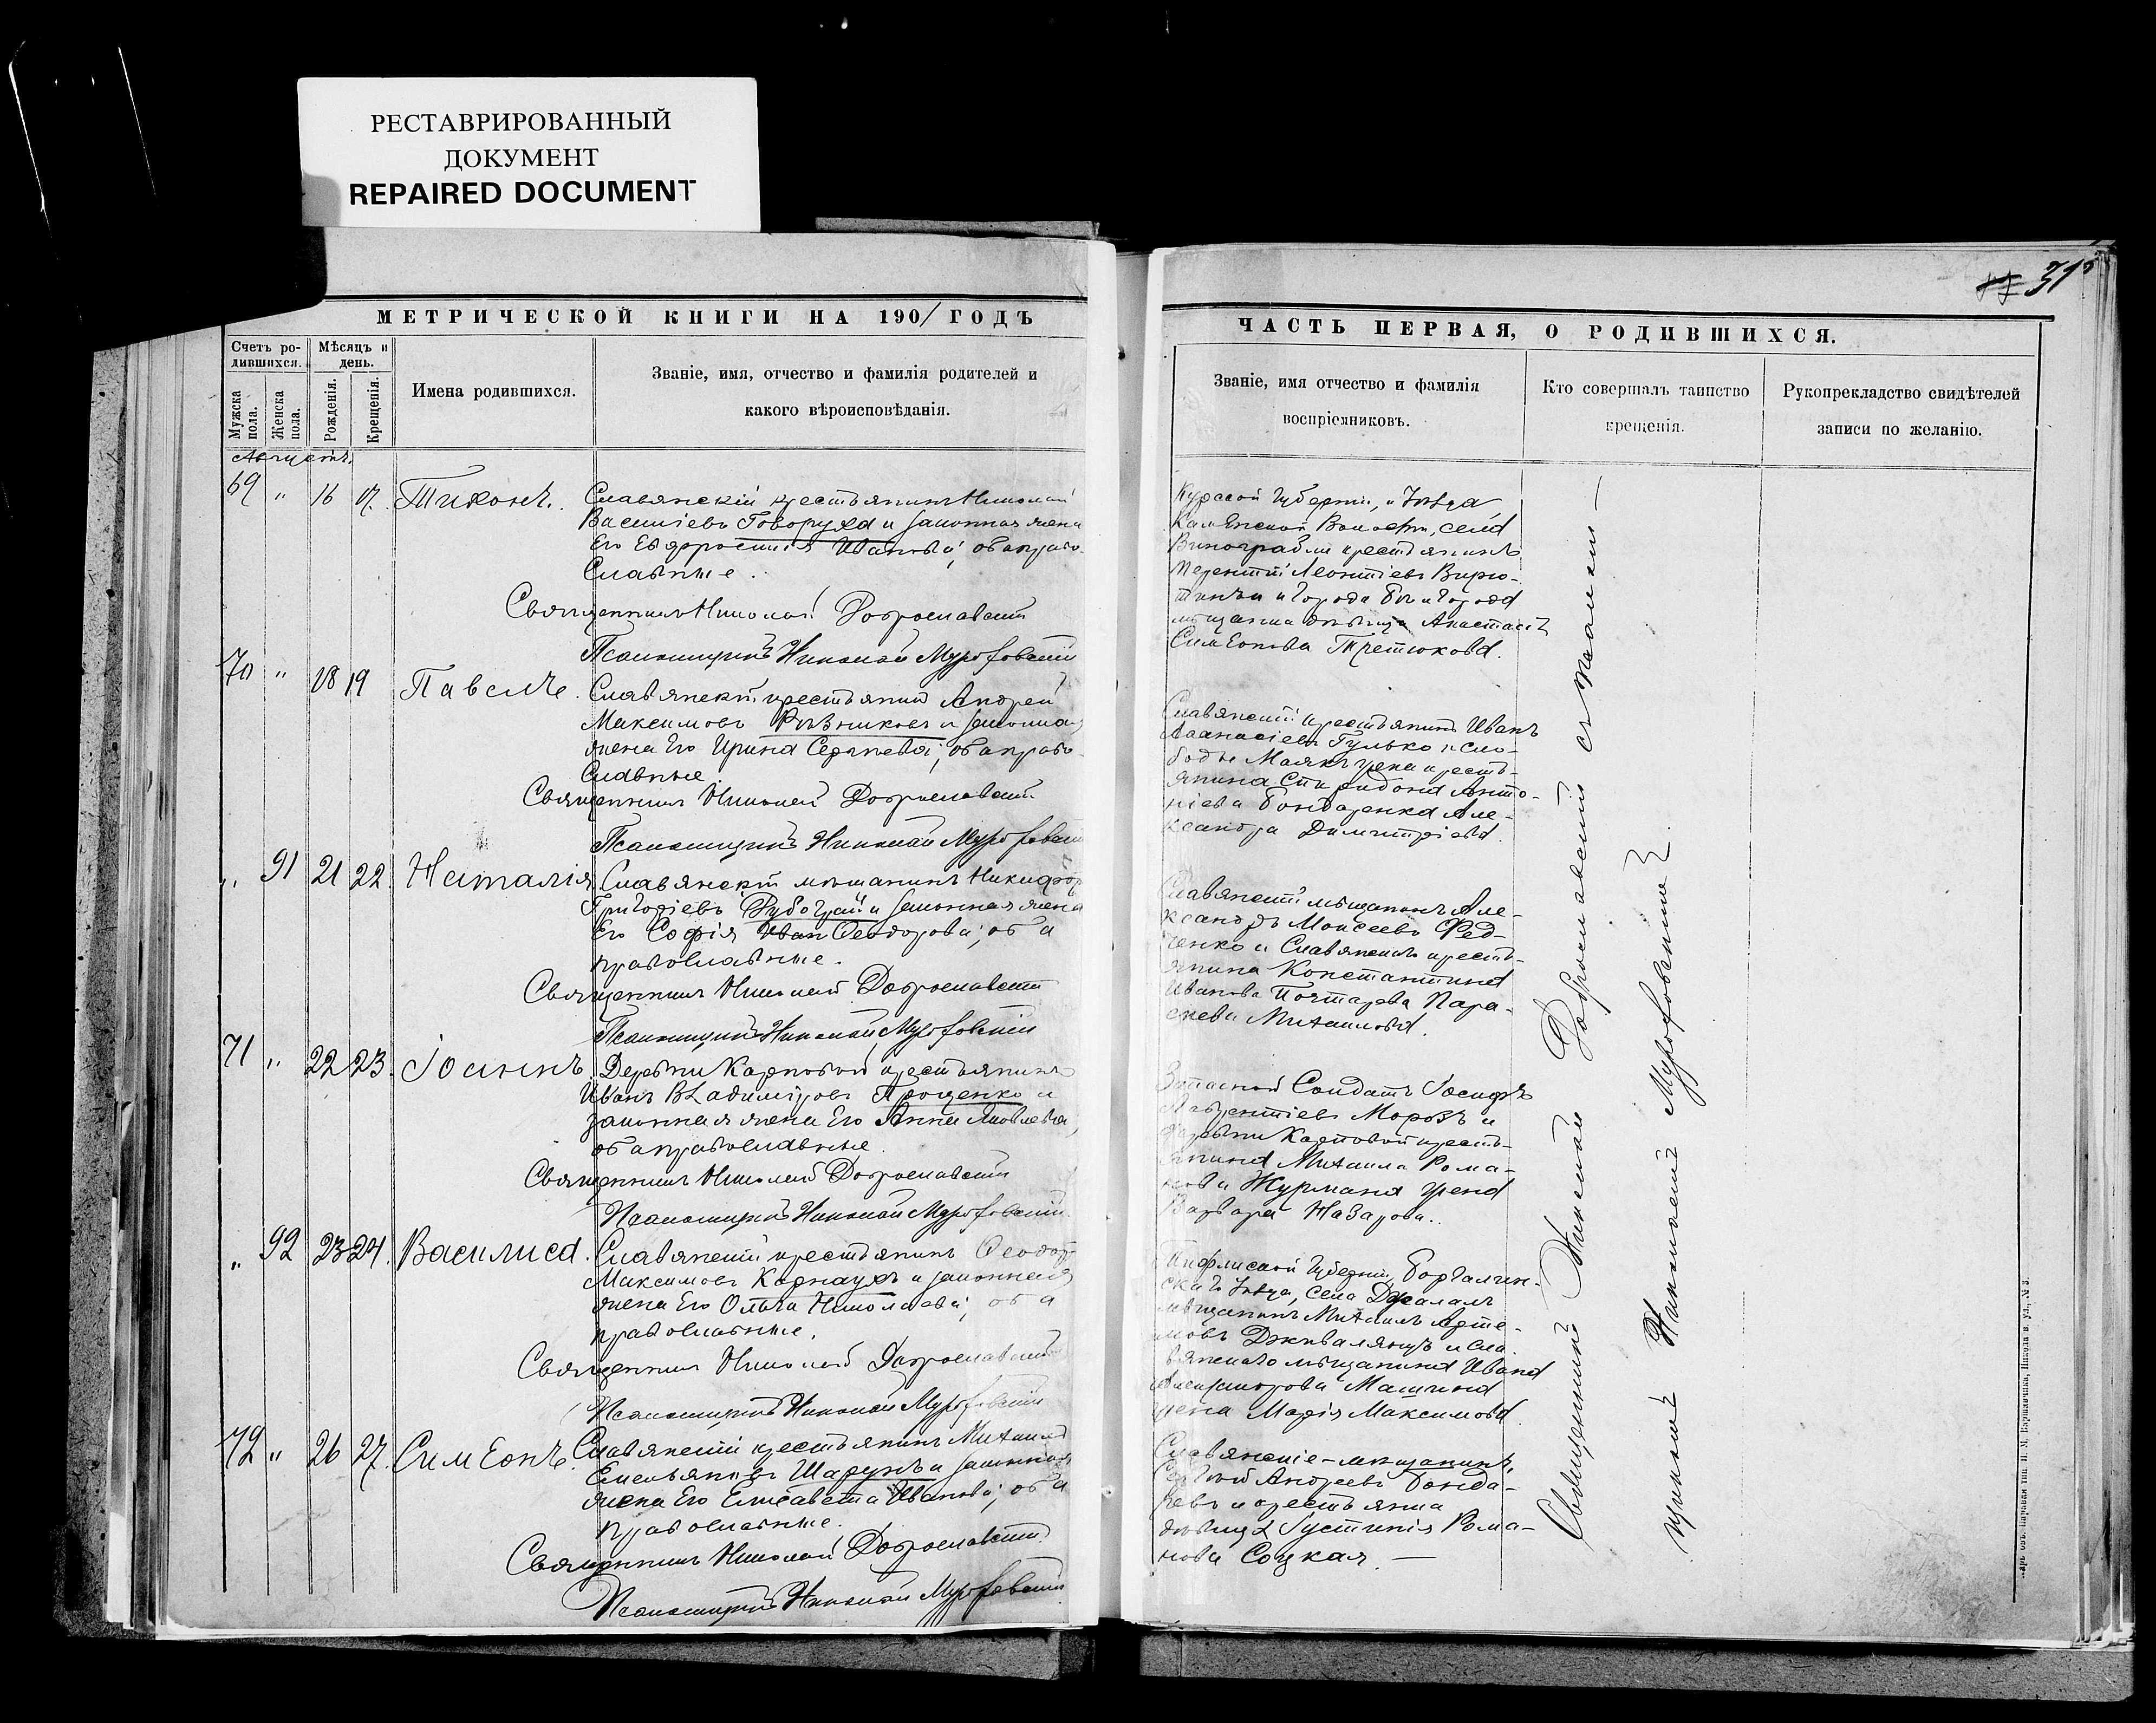 РЕСТАВРИРОВАННЫЙ
ДОКУМЕНТ
REPAIRED DOCUMENT
МЕТРИЧЕСКОЙ КНИГИ НА 1901 ГОДЪ
Счетъ ро-
дившихся.
Мѣсяцъ и
день.
Мужска
пола.
Женска
пола.
Рожденія.
Крещенія.
Имена родившихся.
Званіе, имя, отчество и фамилія родителей и
какого вѣроисповѣданія.
Августъ
69 " 16 17. Тихонъ.
Славянскій крестьянинъ Николай
Василіевъ Говоруха и законная жена
Его Евфросинія Иванова; оба право-
славные.
Священникъ Николай Доброславскій
Псаломщикъ Николай
70 " 18 19 Павелъ.
Славянскій крестьянинъ Андрей
Максимовъ Рѣзниковъ и законная
жена Его Ирина Сергѣева; оба право-
славные
Священникъ Николай Доброславскій
Псаломщикъ Николай
" 91 21 22 Наталія
Славянскій мѣщанинъ Никифоръ
Григоріевъ и законная жена
Его Софія Иван Ѳеодорова; оба
православные.
Священникъ Николай Доброславскій
Псаломщикъ Николай
71 " 22 23 Іоаннъ.
Деревни Карповой крестьянинъ
Иванъ Владиміровъ Проценко и
законная жена Его Анна Яковлева,
оба православные.
Священникъ Николай Доброславскій
Псаломщикъ Николай
" 92 23 24. Василиса.
Славянскій крестьянинъ Ѳеодоръ
Максимовъ Карнаухъ и законная
жена Его Ольга Николаева; оба
православные.
Священникъ Николай Доброславскій
Псаломщикъ Николай
72 " 26 27. Симеонъ.
Славянскій крестьянинъ Михаилъ
Емельяновъ Шарунъ и законная
жена Его Елисавета Иванова; оба
православные.
Священникъ Николай Доброславскій
Псаломщикъ Николай
31
ЧАСТЬ ПЕРВАЯ, О РОДИВШИХСЯ.
Званіе, имя отчество и фамилія
воспріемниковъ.
Кто совершалъ таинство
крещенія.
Рукоприкладство свидѣтелей
записи по желанію.
Курской Губерніи, и Уѣзда
Каменской Волости, села
Виноградли крестьянинъ
Леонтіевъ Вирю-
и города Бѣлгорода
мѣщанка дѣвица Анастасія
Симеонова Третюкова.
Славянскій крестьянинъ Иванъ
Аѳанасіевъ Гулько и сло-
боды Маякъ жена кресть-
янина Спиридона Анто-
ніева Бондаренка Але-
ксандра Димитріева.
Славянскій мѣщанинъ Але-
ксандръ Моисеевъ Фед-
ченко и Славянскаго кресть-
янина Константина
Иванова Почтарева Пара-
скева Михаилова.
Запасной Солдатъ Іосифъ
Лаврентіевъ Морозъ и
деревни Карповой кресть-
янина Михаила Рома-
нова Журмана жена
Варвара Назарова.
Тифлисской Губерніи, Борчалин-
скаго Уѣзда, села Джалалъ
мѣщанинъ Михаилъ Арте-
мовъ и Сла-
вянскаго мѣщанина Ивана
Александрова Машина
жена Марія Максимова.
Славянскіе - мѣщанинъ,
Андреевъ Бонда-
ревъ и крестьянка
дѣвица Іустинія Рома-
нова Соцкая. —
Священникъ Николай Доброславскій съ псалом-
щикомъ Николаемъ